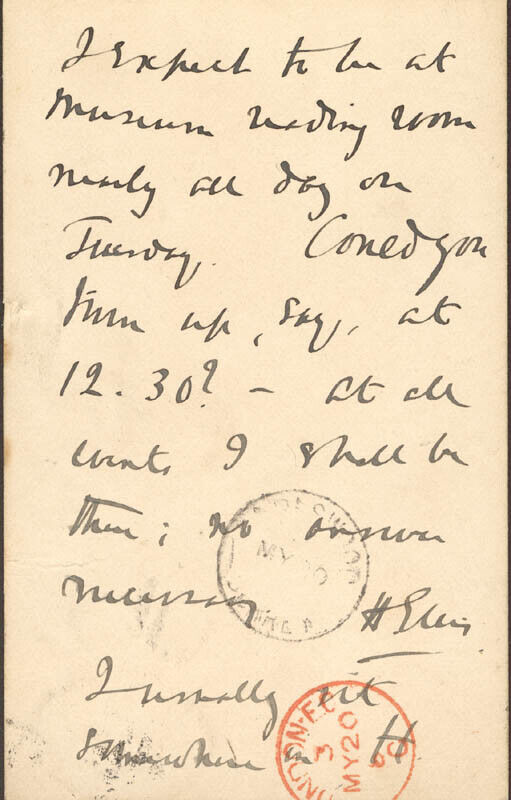 I expect to be at
Museum reading room
nearly all day on
Tuesday. Could you
turn up, say, at
12.30? – at all
events I shall be
there; no answer
necessary H Ellis
I usually sit
somewhere in H.
LONDON-E.C
3
MY 20
90
MY 20